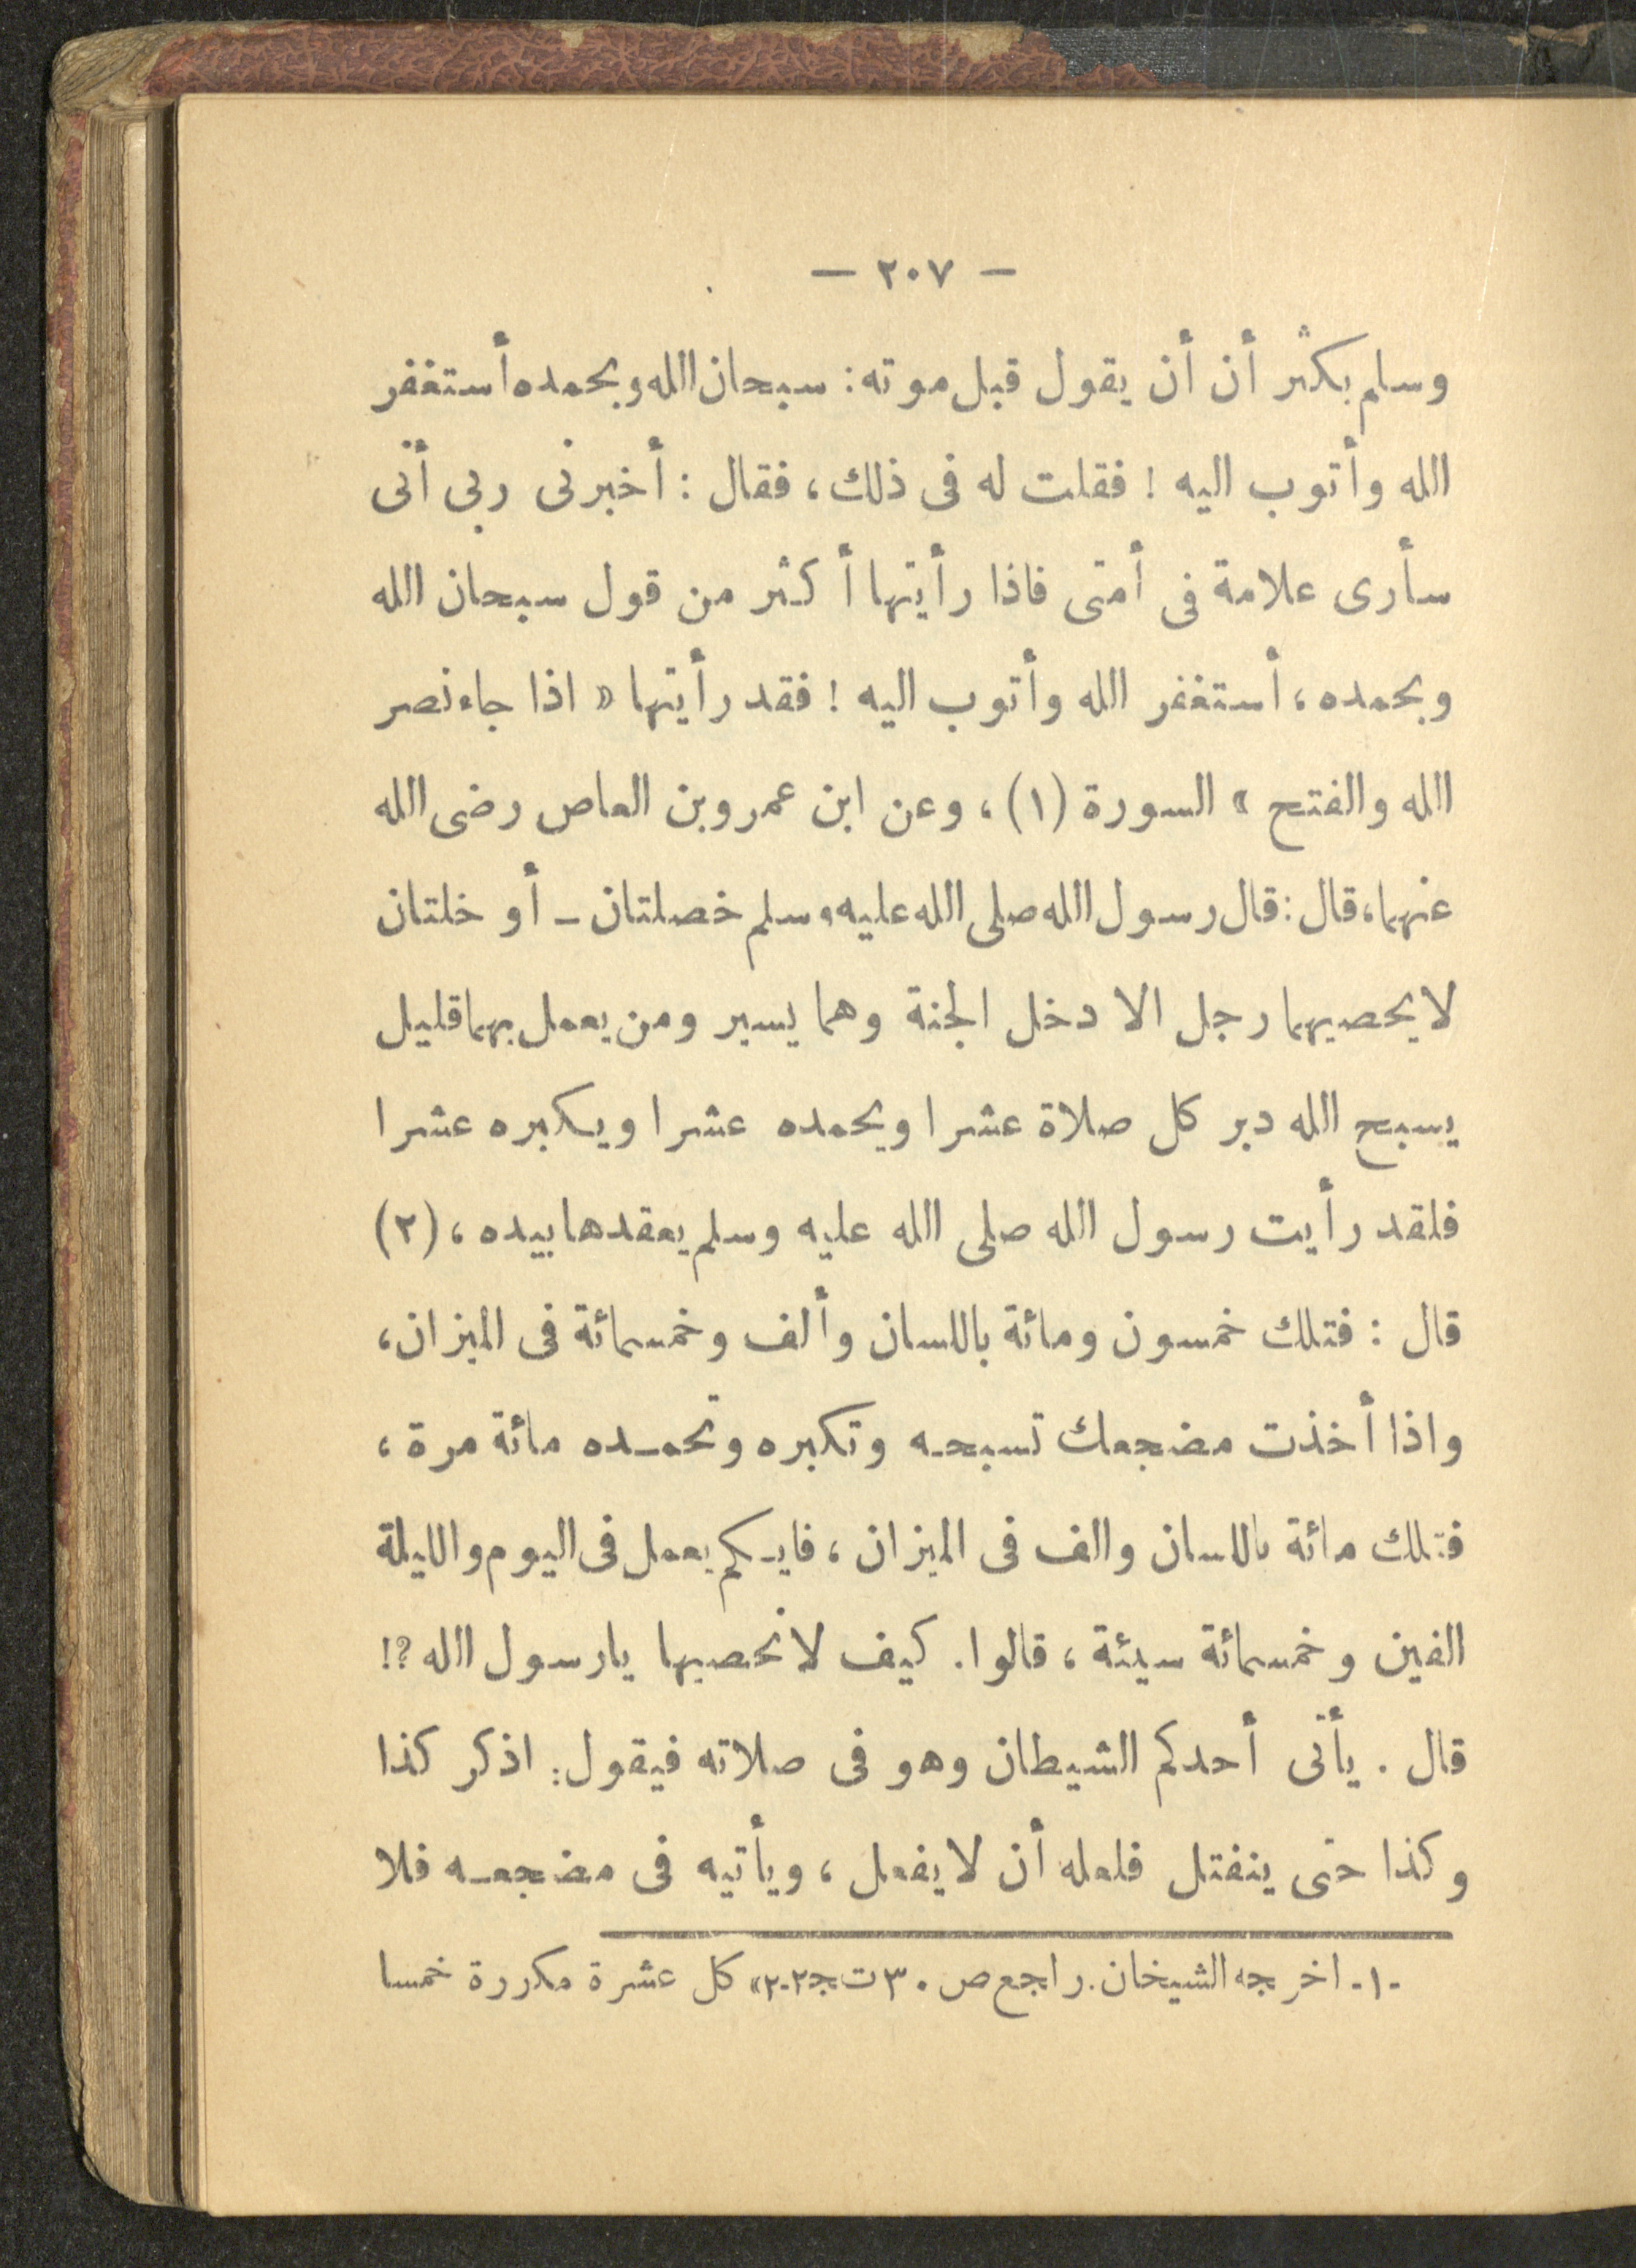 — ٢٠٧ —
وسلم بكثر أن أن يقول قبل موته: سبحان الله وبحمده أستغفر
الله وأتوب اليه ! فقلت له فى ذلك، فقال : أخبرنى ربى أنى
سأرى علامة فى أمتى فاذا رأيتها أكثر من قول سبحان الله
وبحمده، أستغفر الله وأتوب اليه ! فقد رأيتها « اذا جاء نصر
الله والفتح » السورة (١)، وعن ابن عمرو بن العاص رضى الله
عنهما، قال: قال رسول الله صلى الله عليه وسلم خصلتان - أو خلتان
لا يحصيهما رجل الا دخل الجنة وهما يسير ومن يعمل بهما قليل
يسبح الله دبر كل صلاة عشرا ويحمده عشرا ويكبره عشرا
فلقد رأيت رسول الله صلى الله عليه وسلم يعقدها بيده، (٢)
قال : فتلك خمسون ومائة باللسان وألف وخمسمائة فى الميزان،
واذا أخذت مضجعك تسبحه وتكبره وتحمده مائة مرة،
فتلك مائة باللسان والف فى الميزان، فايكم يعمل فى اليوم والليلة
الفين وخمسمائة سيئة، قالوا. كيف لا نحصيها يا رسول الله ؟!
قال . يأتى أحدكم الشيطان وهو فى صلاته فيقول: اذكر كذا
وكذا حتى ينفتل فلعله أن لا يفعل، ويأتيه فى مضجعه فلا
-١- اخرجه الشيخان. راجع ص ٣٠ ت ج٢-٢» كل عشرة مكررة خمسا